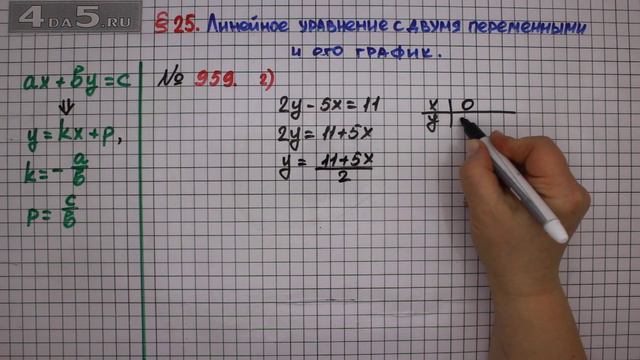 4DA5.RU
§ 25. Линейное уравнение с двумя переменными
и его график.
ax + by = c
⇓
y = kx + p,
k = - a/b
p = c/b
№ 959. г)
2y - 5x = 11
2y = 11 + 5x
y = 11 + 5x / 2
x | 0
y |